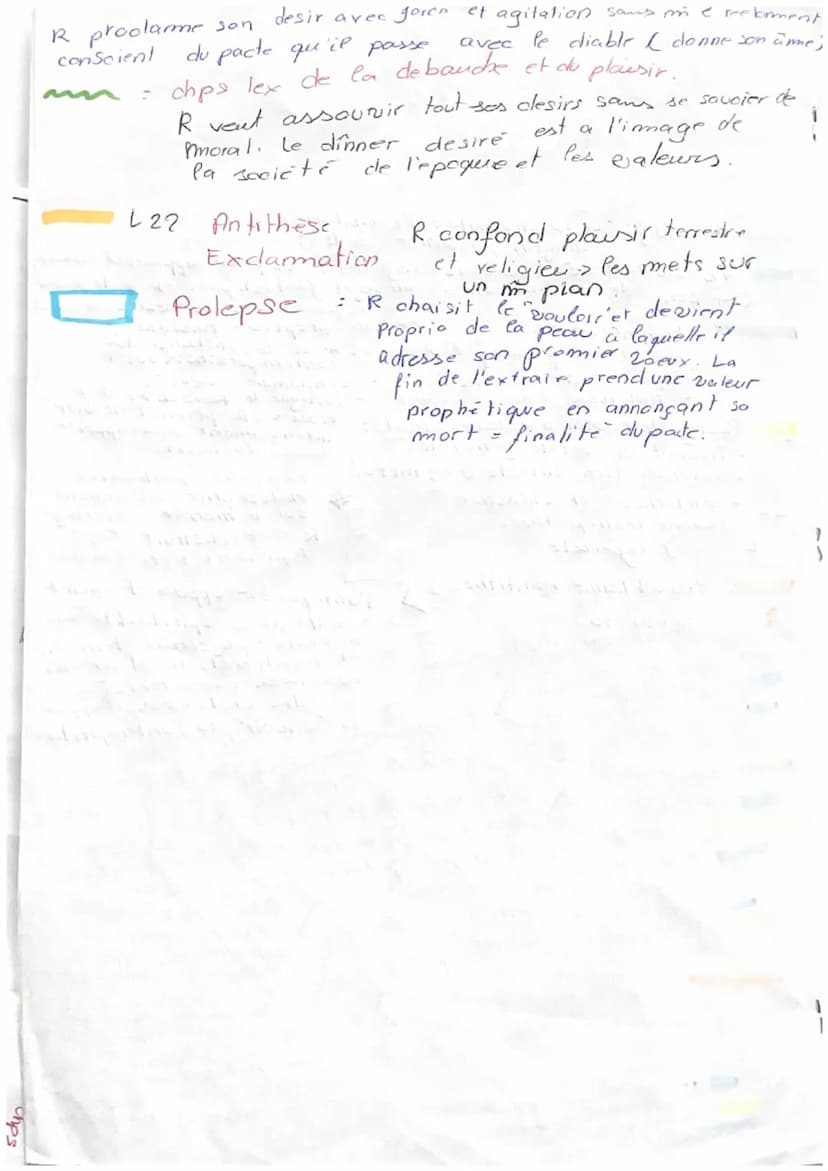 R proclame son desir avec force et agitation sans m̂ ê reelement
conscient du pacte qu'il passe avec le diable ( donne son âme)
= chps lex de la debauche et du plaisir.
R veut assouvir tout ses desirs sans se soucier de
moral. Le dînner desiré est a l'image de
la societé de l'epoque et les valeurs.
L 22 Antithèse R confond plaisir terrestre
Exclamation et religieu → les mets sur
un m̂ plan
Prolepse : R chaisit le "vouloir" et devient
proprio de la peau à laquelle il
adresse son premier voeux. La
fin de l'extrait prend une valeur
prophétique en annonçant sa
mort = finalité du pacte.